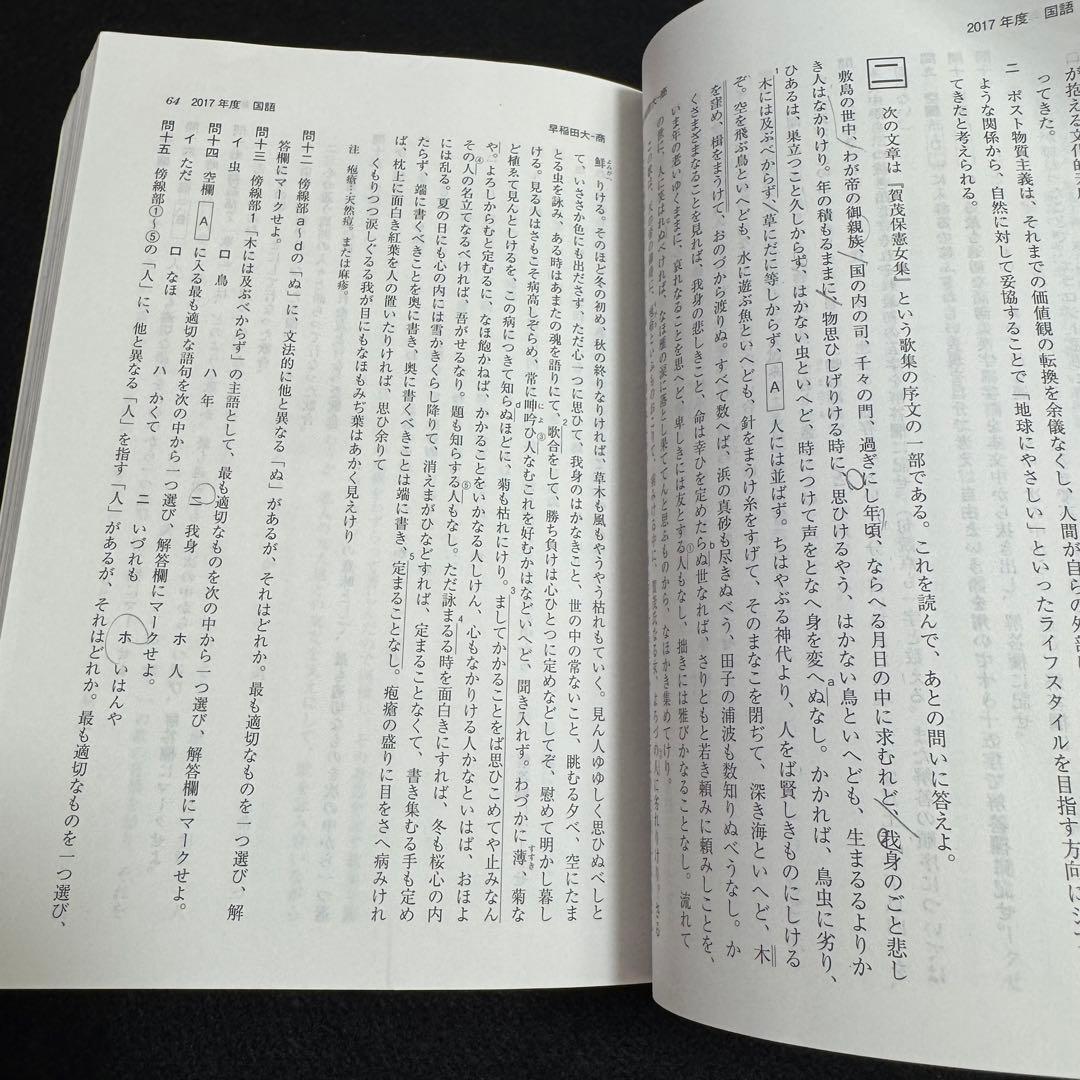 2017年度 国語
ってきた。
ニ ポスト物質主義は、それまでの価値観の転換を余儀なくし、人間が自らの
ような関係から、自然に対して妥協することで「地球にやさしい」といったライフスタイルを目指す方向に
てきたと考えられる。
二 次の文章は『賀茂保憲女集』という歌集の序文の一部である。これを読んで、あとの問いに答えよ。
敷島の世中、わが帝の御親族、国の内の司、千々の門、過ぎにし年頃、ならへる月日の中に求むれど、我身のごと悲し
き人はなかりけり。年の積もるままに、物思ひしげりける時に、思ひけるやう、はかない鳥といへども、生まるるよりか
ひあるは、巣立つこと久しからず、はかない虫といへど、時につけて声をとなへ身を変へaぬなし。かかれば、鳥虫に劣り、
1木には及ぶべからず、草にだに等しからず、 A 人には並ばず。ちはやぶる神代より、人をば賢しきものにしける
ぞ。空を飛ぶ鳥といへども、水に遊ぶ魚といへども、針をまうけ糸をすげて、そのまなこを閉ぢて、深き海といへど、木
を窪め、楫をまうけて、おのづから渡りぬ。すべて数へば、浜の真砂も尽きぬべう、田子の浦波も数知りぬべうなし。か
くさまざまなることを見れば、我身の悲しきこと、命は幸ひを定めたらbぬ世なれば、さりともと若き頼みに頼みしことを、
いま年の老いゆくままに、哀れなることを思へど、卑しきには友とする①人もなし、拙きには雅びかなることなし。流れて
64 2017年度 国語
早稲田大-商
鮮りける。そのほど冬の初め、秋の終りなりければ、草木も風もやうやう枯れもていく。見ん人ゆゆしく思ひぬべしと
て、いささか色にも出ださず、ただ心一つに思ひて、我身のはかなきこと、世の中の常ないこと、眺むる夕べ、空にたま
とる虫を詠み、ある時はあまたの魂を語りにて、2歌合をして、勝ち負けは心ひとつに定めなどしてぞ、慰めて明かし暮し
ける。見る人はさもこそ病高しぞらめ、常に呻吟ひ③人なむこれを好むかはなどいへど、聞き入れず。わづかに薄、菊な
ど植ゑて見んとしけるを、この病につきて知らdぬほどに、菊も枯れにけり。3ましてかかることをば思ひこめてや止みなん
や。よろしからむと定むるに、なほ飽かねば、かかることをいかなる人しけん、心もなかりける人かなといはば、おほよ
その④人の名立てなるべければ、吾がせるなり。題も知らする⑤人もなし。ただ詠まるる時を面白きにすれば、冬も桜心の内
には乱る。夏の日にも心の内には雪かきくらし降りて、消えまがひなどすれば、定まることなくて、書き集むる手も定め
たらず、端に書くべきことを奥に書き、奥に書くべきことは端に書き、5定まることなし。疱瘡の盛りに目をさへ病みけれ
ば、枕上に面白き紅葉を人の置いたりければ、思ひ余りて
くもりつつ涙しぐるる我が目にもなほもみぢ葉はあかく見えけり
注 疱瘡…天然痘。または麻疹。
問十二 傍線部a~dの「ぬ」に、文法的に他と異なる「ぬ」があるが、それはどれか。最も適切なものを一つ選び、解
答欄にマークせよ。
問十三 傍線部1「木には及ぶべからず」の主語として、最も適切なものを次の中から一つ選び、解答欄にマークせよ。
イ 虫 ロ 鳥 ハ 年 ニ 我身 ホ 人
問十四 空欄 A に入る最も適切な語句を次の中から一つ選び、解答欄にマークせよ。
イ ただ ロ なほ ハ かくて ニ いづれも ホ いはんや
問十五 傍線部①~⑤の「人」に、他と異なる「人」を指す「人」があるが、それはどれか。最も適切なものを一つ選び、